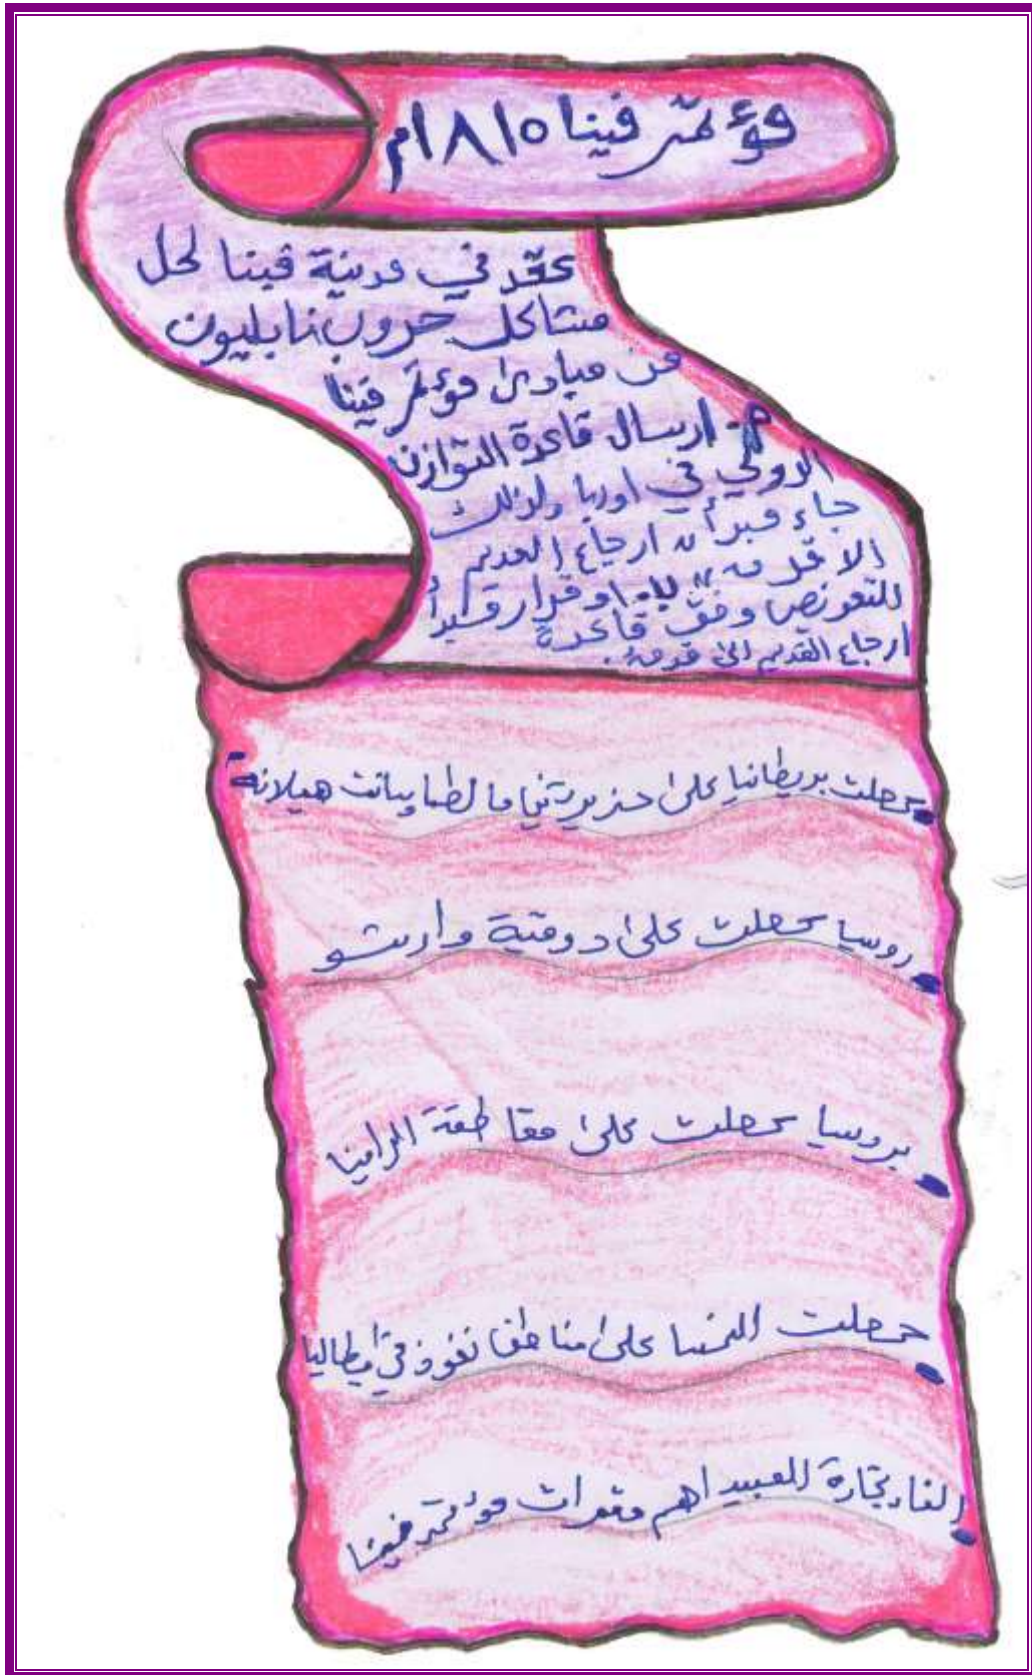 مؤتمر فينا ١٨١٥م
عقد في مدينة فينا لحل
مشاكل حروب نابليون
من مبادئ مؤتمر فينا
م- ارسال قاعدة التوازن
الدولي في اوربا ولذلك
جاء مبدأ ارجاع القديم
الا قدمه
للتعويض وفق قاعدة
ارجاع القديم الى قدمه.
حصلت بريطانيا على جزيرتي مالطا وسانت هيلانة
روسيا حصلت على دوقية وارشو
بروسيا حصلت على مقاطعة الراينيا
حصلت النمسا على مناطق نفوذ في ايطاليا
الغاء تجارة للعبيد اهم مقررات مؤتمر فينا